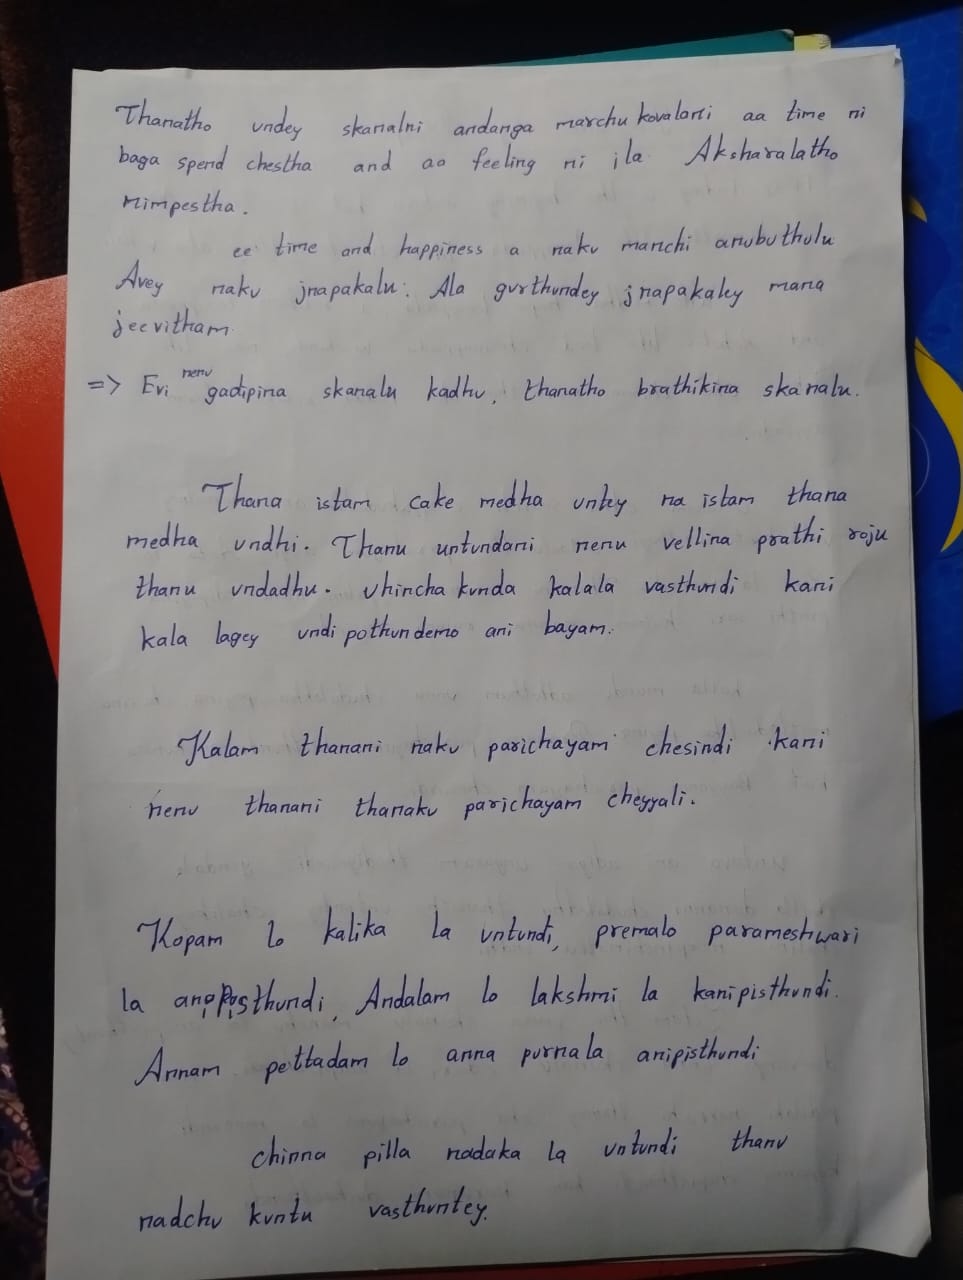 Thanatho undey skanalni andanga marchu kovalani aa time ni
baga spend chestha and aa feeling ni ila Aksharalatho
nimpestha.
ee time and happiness a naku manchi anubuthulu
Avey naku jnapakalu. Ala gurthundey jnapakaley mana
jeevitham
=> Evi nenu gadipina skanalu kadhu, thanatho brathikina skanalu.
Thana istam cake medha untey na istam thana
medha undhi. Thanu untundani nenu vellina prathi roju
thanu undadhu. Uhincha kunda kalala vasthundi kani
kala lagey undi pothundemo ani bayam.
Kalam thanani naku parichayam chesindi kani
nenu thanani thanaku parichayam cheyyali.
Kopam lo kalika la untundi, premalo parameshwari
la anipisthundi, Andalam lo lakshmi la kanipisthundi.
Annam pettadam lo anna purnala anipisthundi
chinna pilla nadaka la untundi thanu
nadchu kuntu vasthuntey.